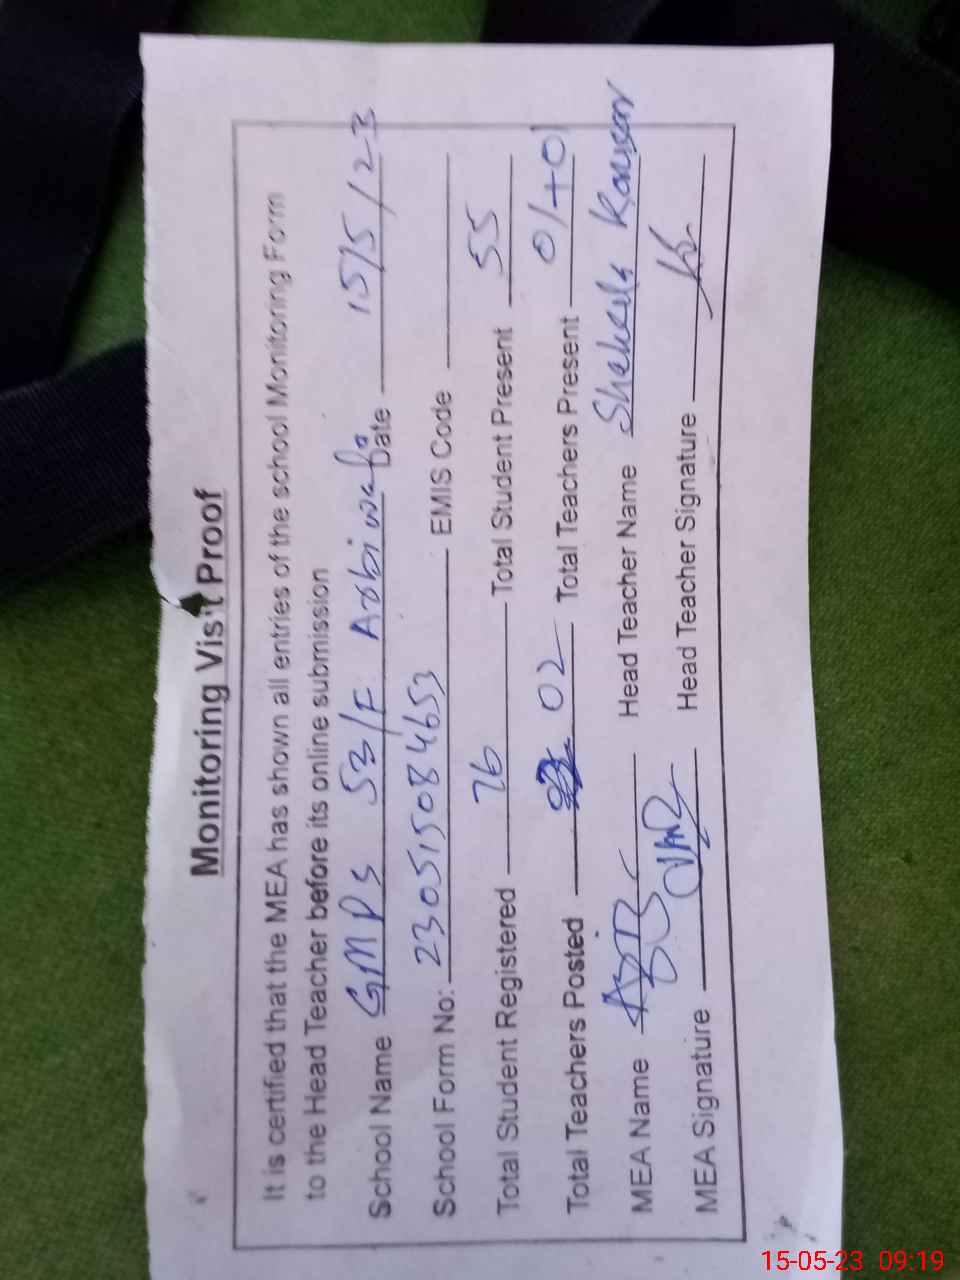 Monitoring Visit Proof
It is certified that the MEA has shown all entries of the school Monitoring Form
to the Head Teacher before its online submission
School Name GMPS 53/F Arbi Date 15/5/23
School Form No: 2305,15084653 EMIS Code
Total Student Registered 76 Total Student Present 55
Total Teachers Posted 02 Total Teachers Present 01+01
MEA Name Head Teacher Name Shakeela Kausar
MEA Signature Head Teacher Signature
15-05-23 09:19